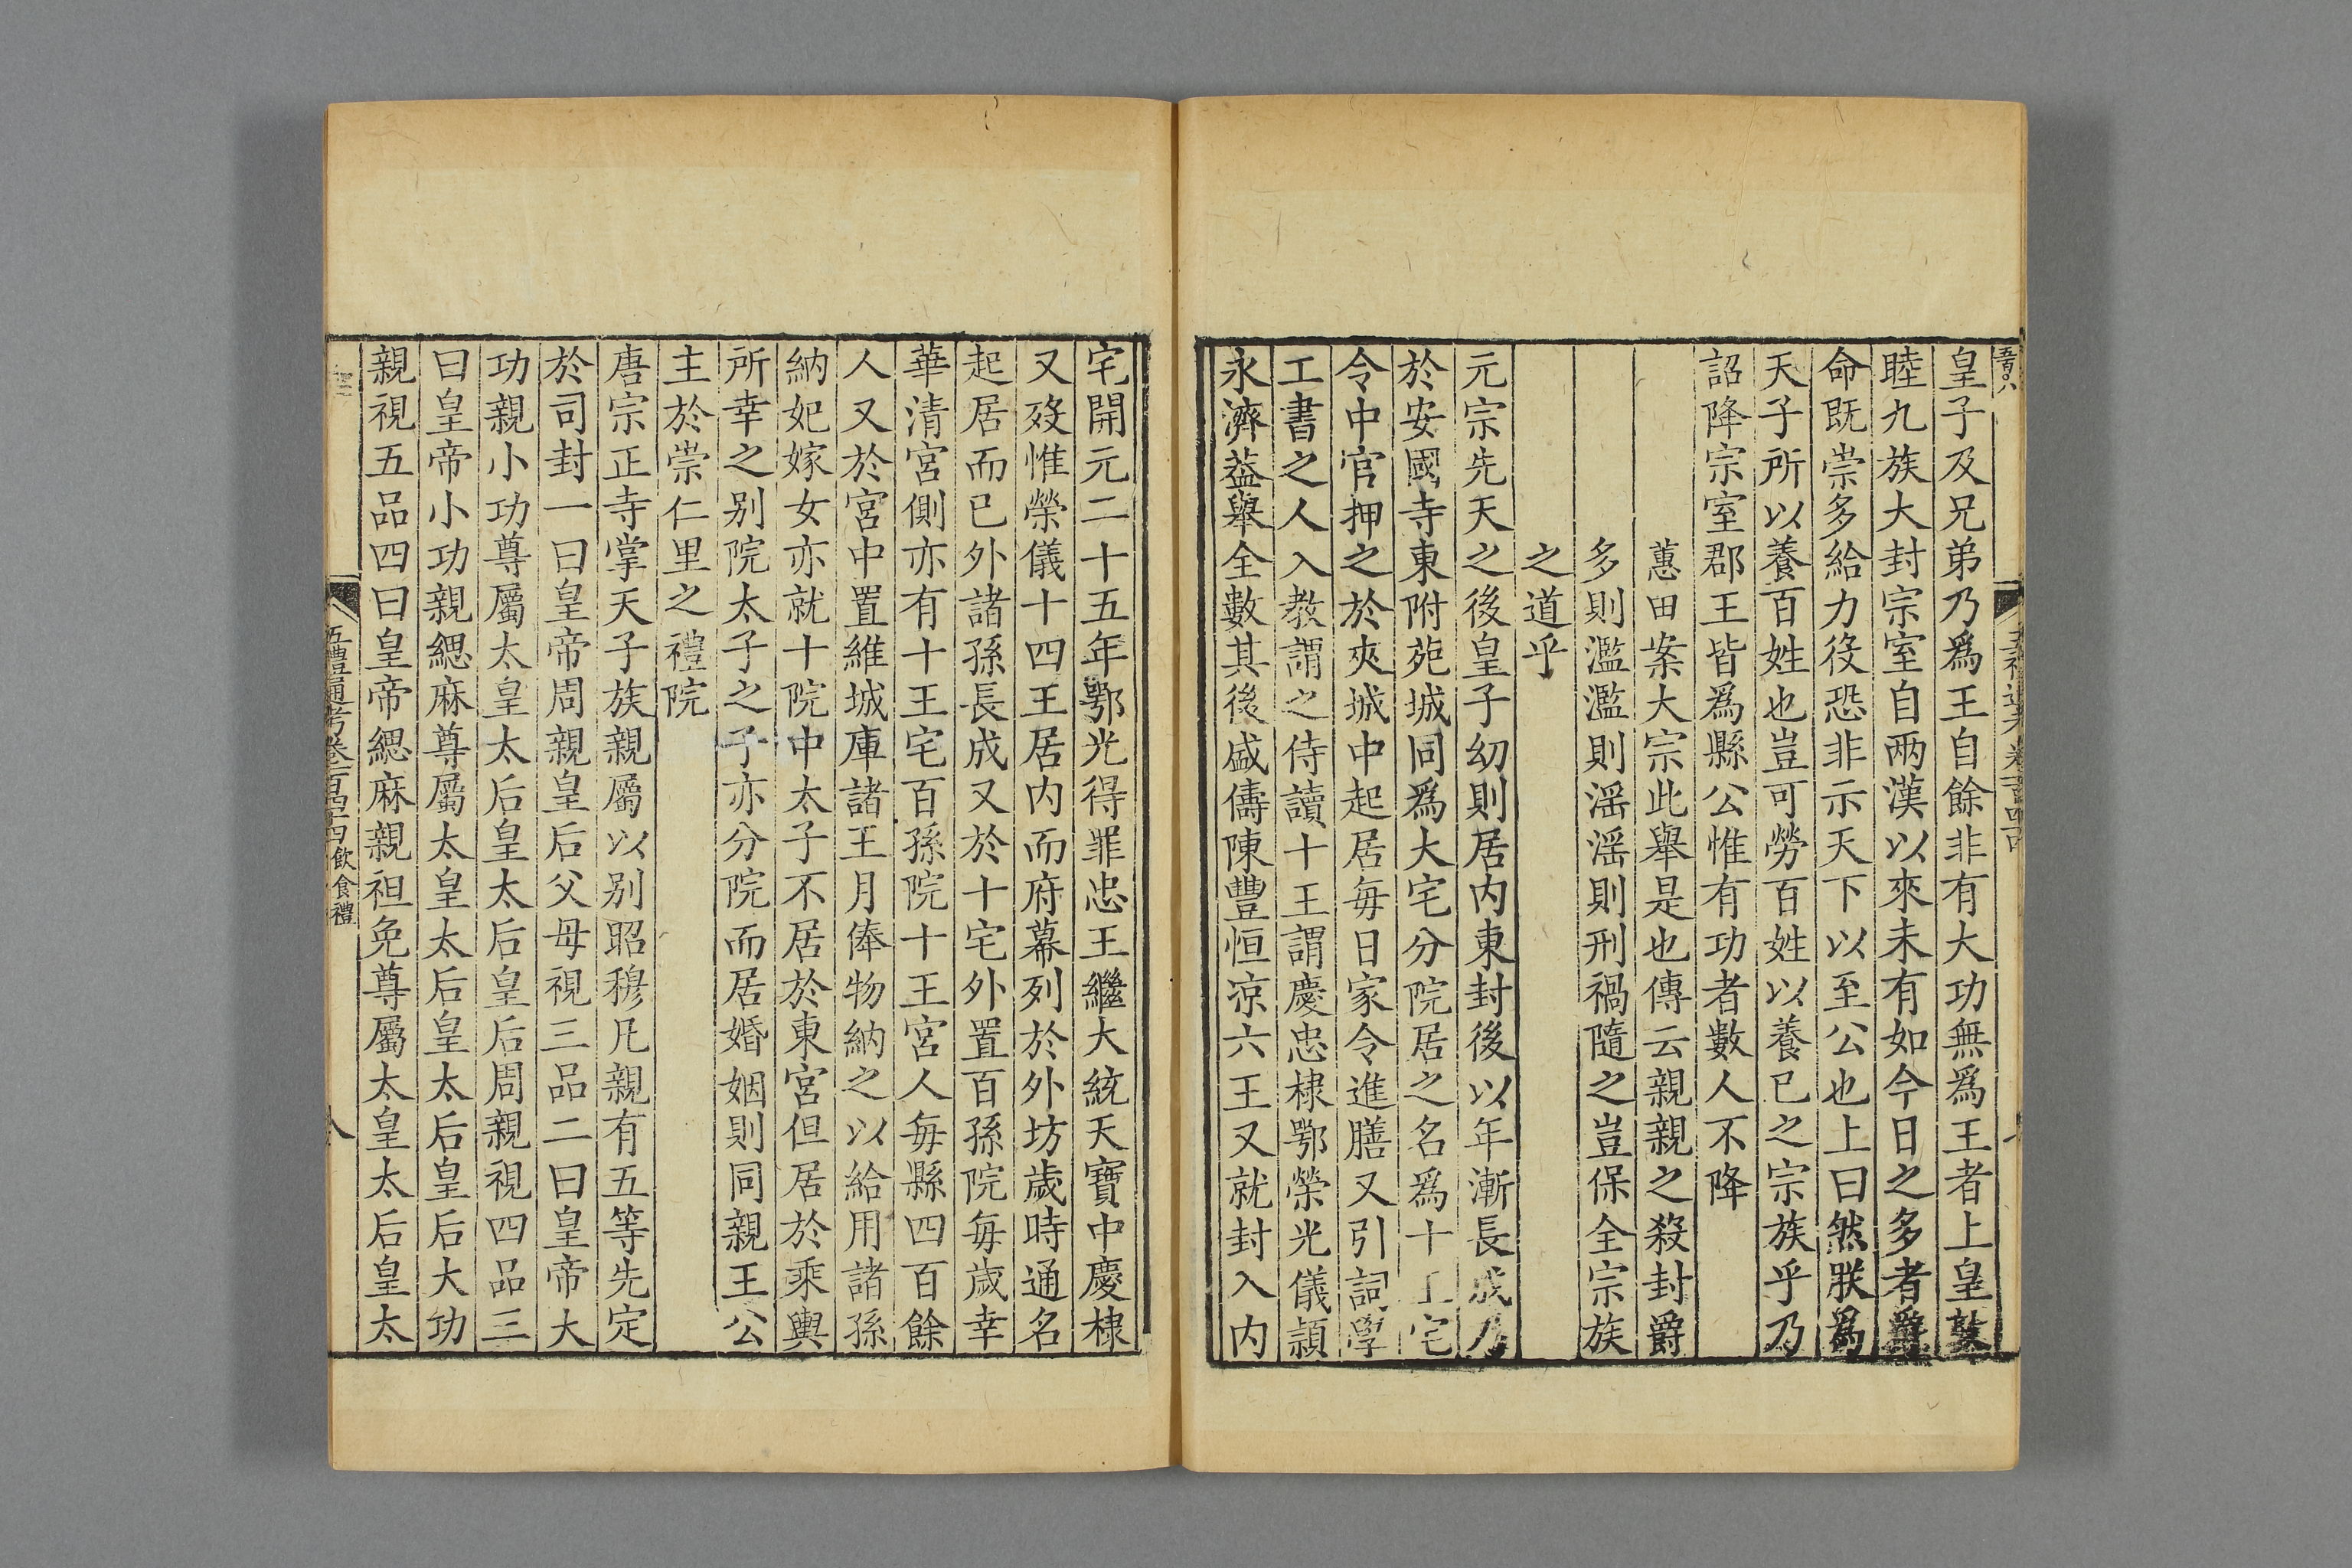 皇子及兄弟乃爲王自餘非有大功無爲王者上皇敦
睦九族大封宗室自兩漢以來未有如今日之多者爵
命既崇多給力役恐非示天下以至公也上曰然朕爲
天子所以養百姓也豈可勞百姓以養已之宗族乎乃
詔降宗室郡王皆爲縣公惟有功者數人不降
蕙田案大宗此舉是也傳云親親之殺封爵
多則濫濫則滛滛則刑禍隨之豈保全宗族
之道乎
元宗先天之後皇子幼則居内東封後以年漸長成乃
於安國寺東附苑城同爲大宅分院居之名爲十王宅
令中官押之於夾城中起居每日家令進膳又引詞學
工書之人入教謂之侍讀十王謂慶忠棣鄂榮光儀潁
永濟葢舉全數其後盛儔陳豐恒凉六王又就封入内
宅開元二十五年鄂光得罪忠王繼大統天寶中慶棣
又歿惟榮儀十四王居内而府幕列於外坊歲時通名
起居而已外諸孫長成又於十宅外置百孫院每歲幸
華清宮側亦有十王宅百孫院十王宮人每縣四百餘
人又於宮中置維城庫諸王月俸物納之以給用諸孫
納妃嫁女亦就十院中太子不居於東宮但居於乘輿
所幸之别院太子之子亦分院而居婚姻則同親王公
主於崇仁里之禮院
唐宗正寺掌天子族親屬以别昭穆凡親有五等先定
於司封一曰皇帝周親皇后父母視三品二曰皇帝大
功親小功尊屬太皇太后皇太后皇后周親視四品三
曰皇帝小功親緦麻尊屬太皇太后皇太后皇后大功
親視五品四曰皇帝緦麻親袒免尊屬太皇太后皇太
五禮通考卷一百四十四飲食禮
八